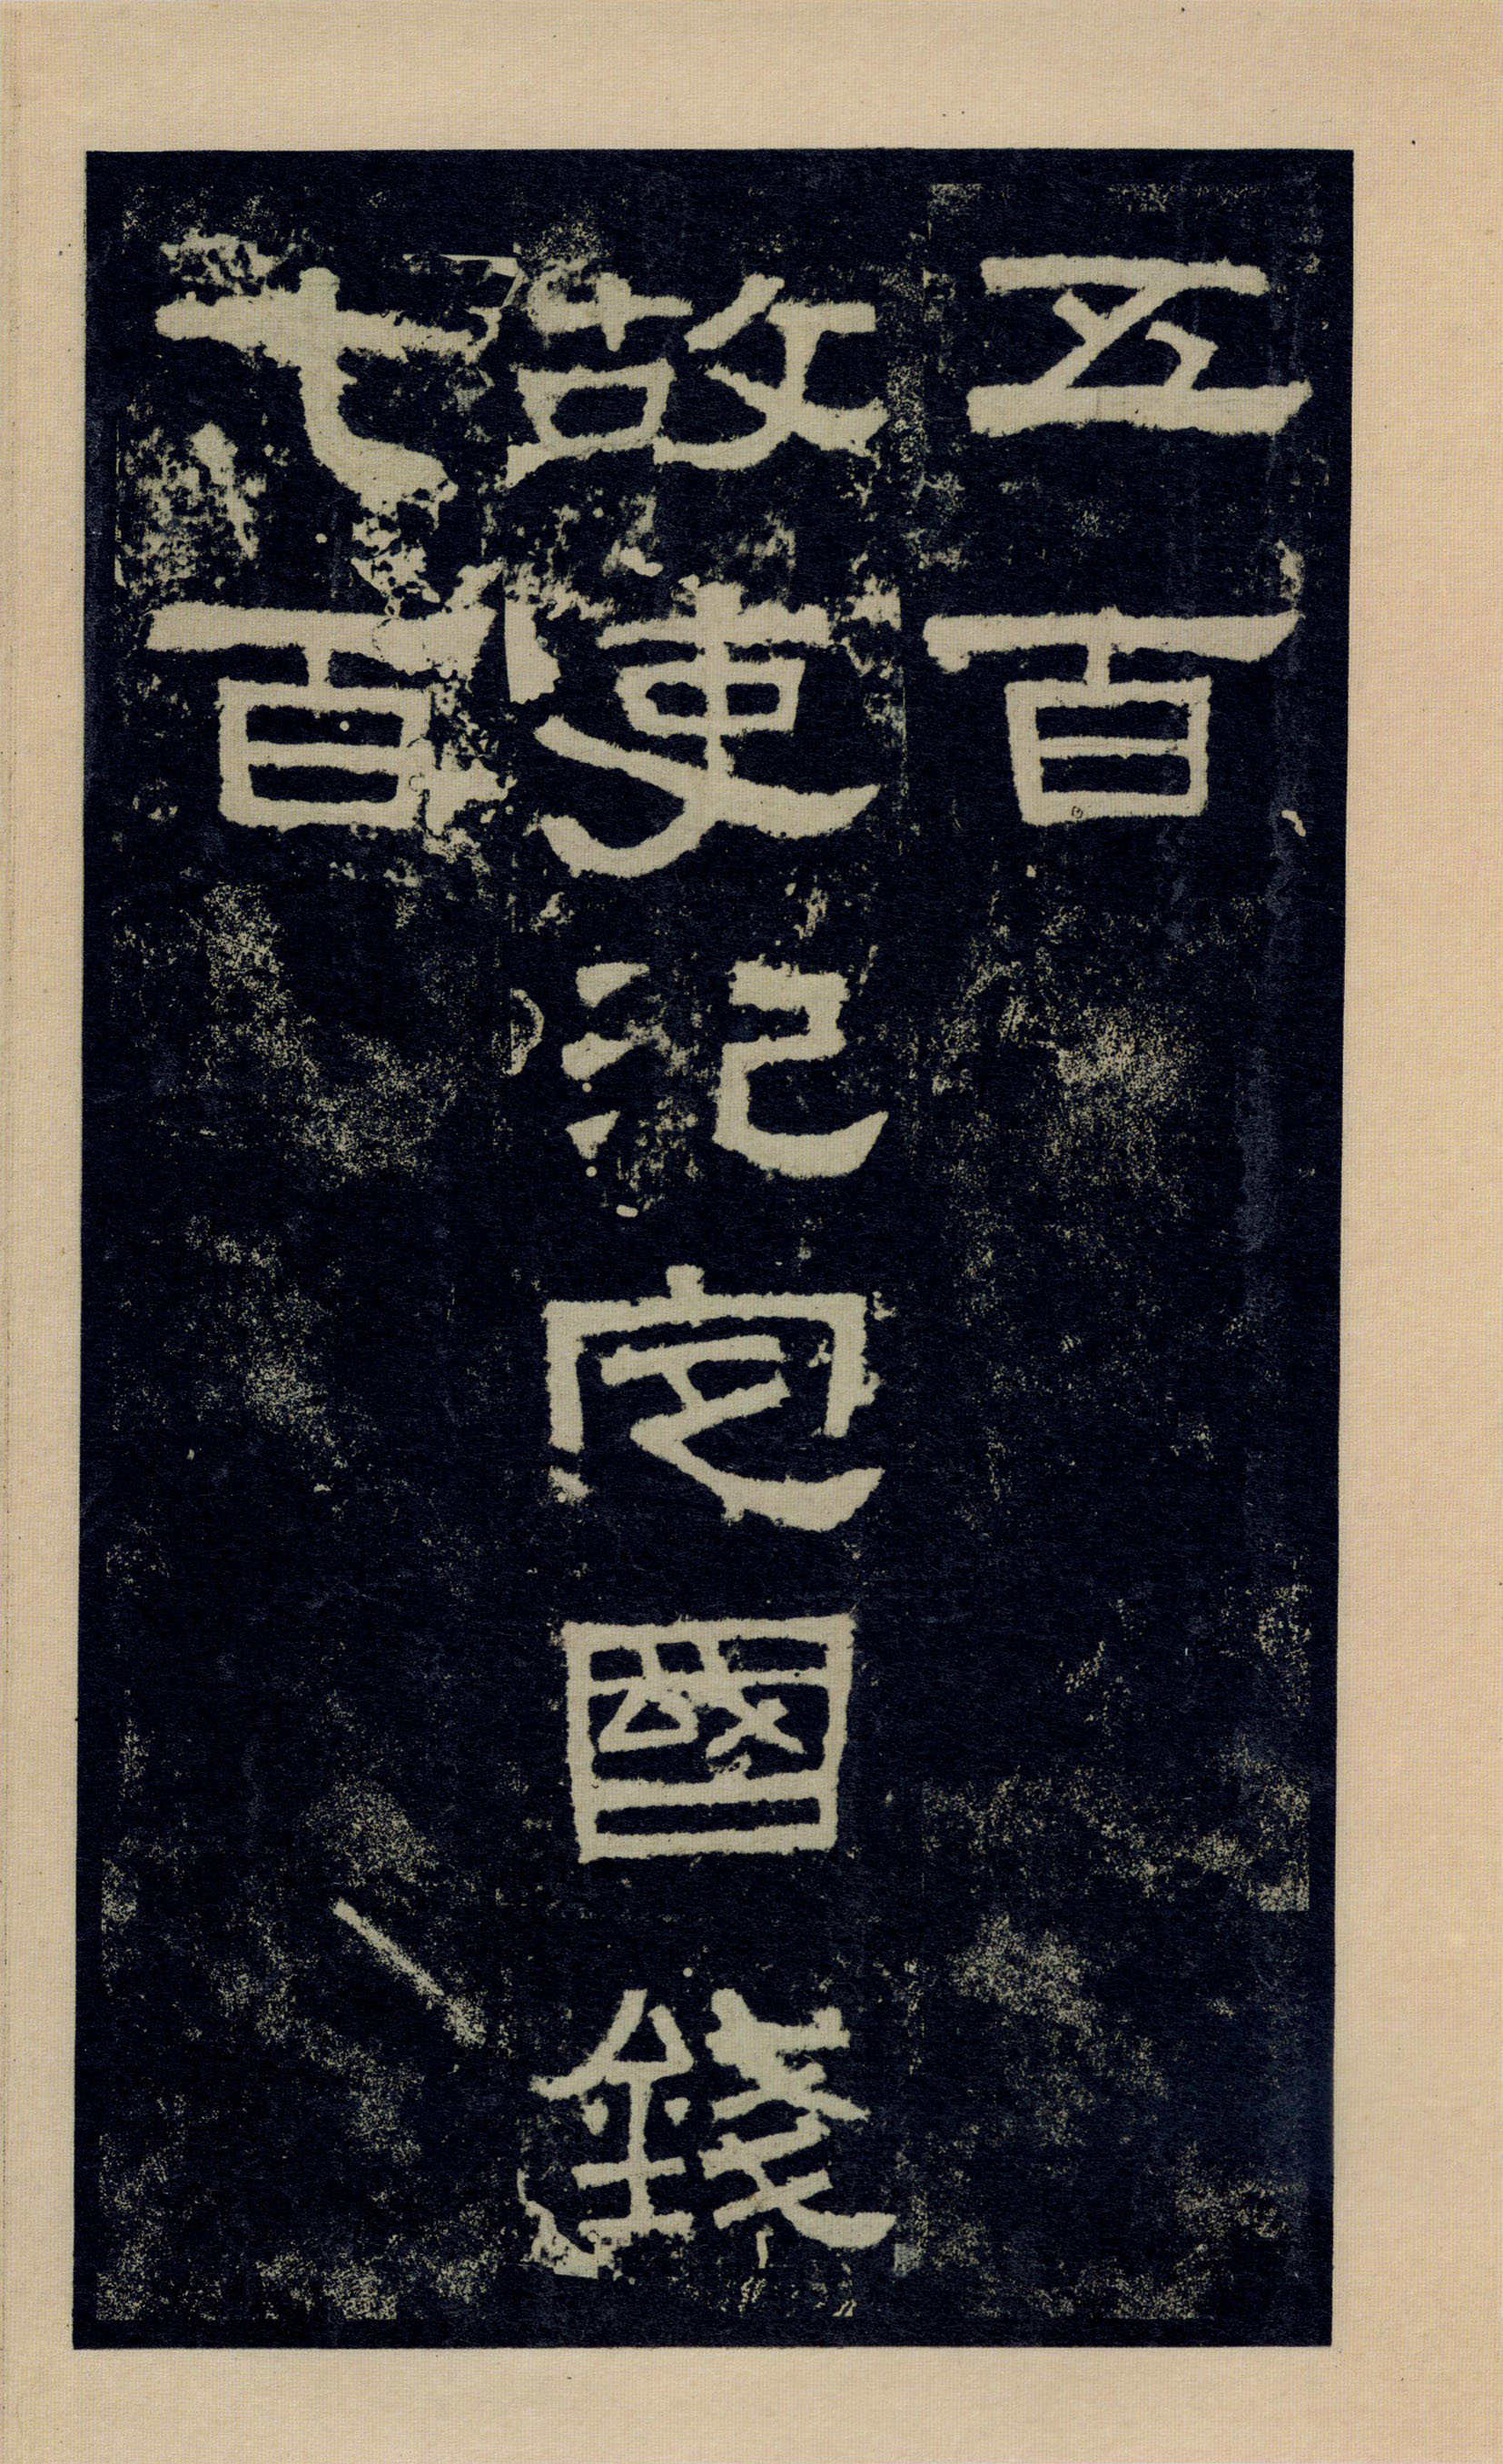 五百
故吏氾定國錢
七百